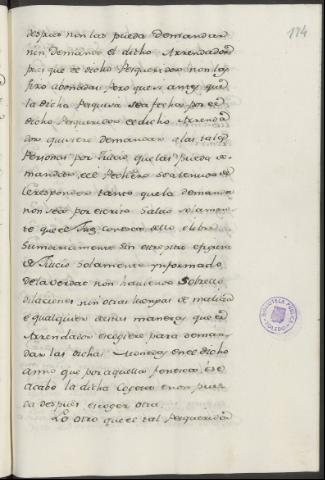 114
despues non las pueda demandar
nin demande el dicho Arrendador
pues que el dicho Pesqueridor non las
fizo abonadas pero que si antes que
la dicha Pesquisa sea fecha por el
dicho Pesqueridor el dicho Arrenda
dor quisiere demandar a las tales
Personas por Juicio que las pueda de
mandar, e el Pechero sea tenudo de
le responder tanto que la demanda
non sea por escrito salvo solamen
te que el Juez conosca dello e libre
Sumariamente sin escripto e figura
de Juicio solamente ynformado
de la verdad non haviendo sobrello
dilaciones nin otras luengas de malicia
e qualquier destas maneras que el
Arrendador escogiere para deman
dar las dichas Monedas en el dicho
anno que por aquella fenezca, e se
acabe la dicha Cogeta e non pue
da despues escoger otra.
Lo otro que el tal Pesqueridor
BIBLIOTECA PUBLICA
TOLEDO